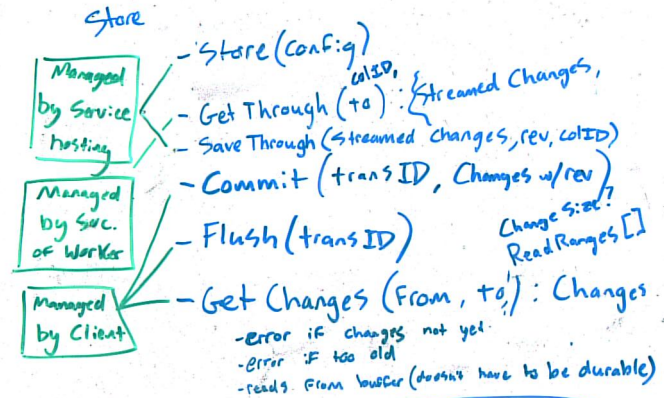 Store
Managed
by Service
hosting
Managed
by Svc.
of Worker
Managed
by Client
- Store (config)
colID,
- Get Through (to) : {Streamed Changes,
- Save Through (Streamed changes, rev, colID)
- Commit (transID, Changes w/rev)
- Flush (transID)
Change Size?
Read Ranges []
- Get Changes (From, to,) : Changes
- error if changes not yet.
- error if too old
- reads from buffer (doesn't have to be durable)